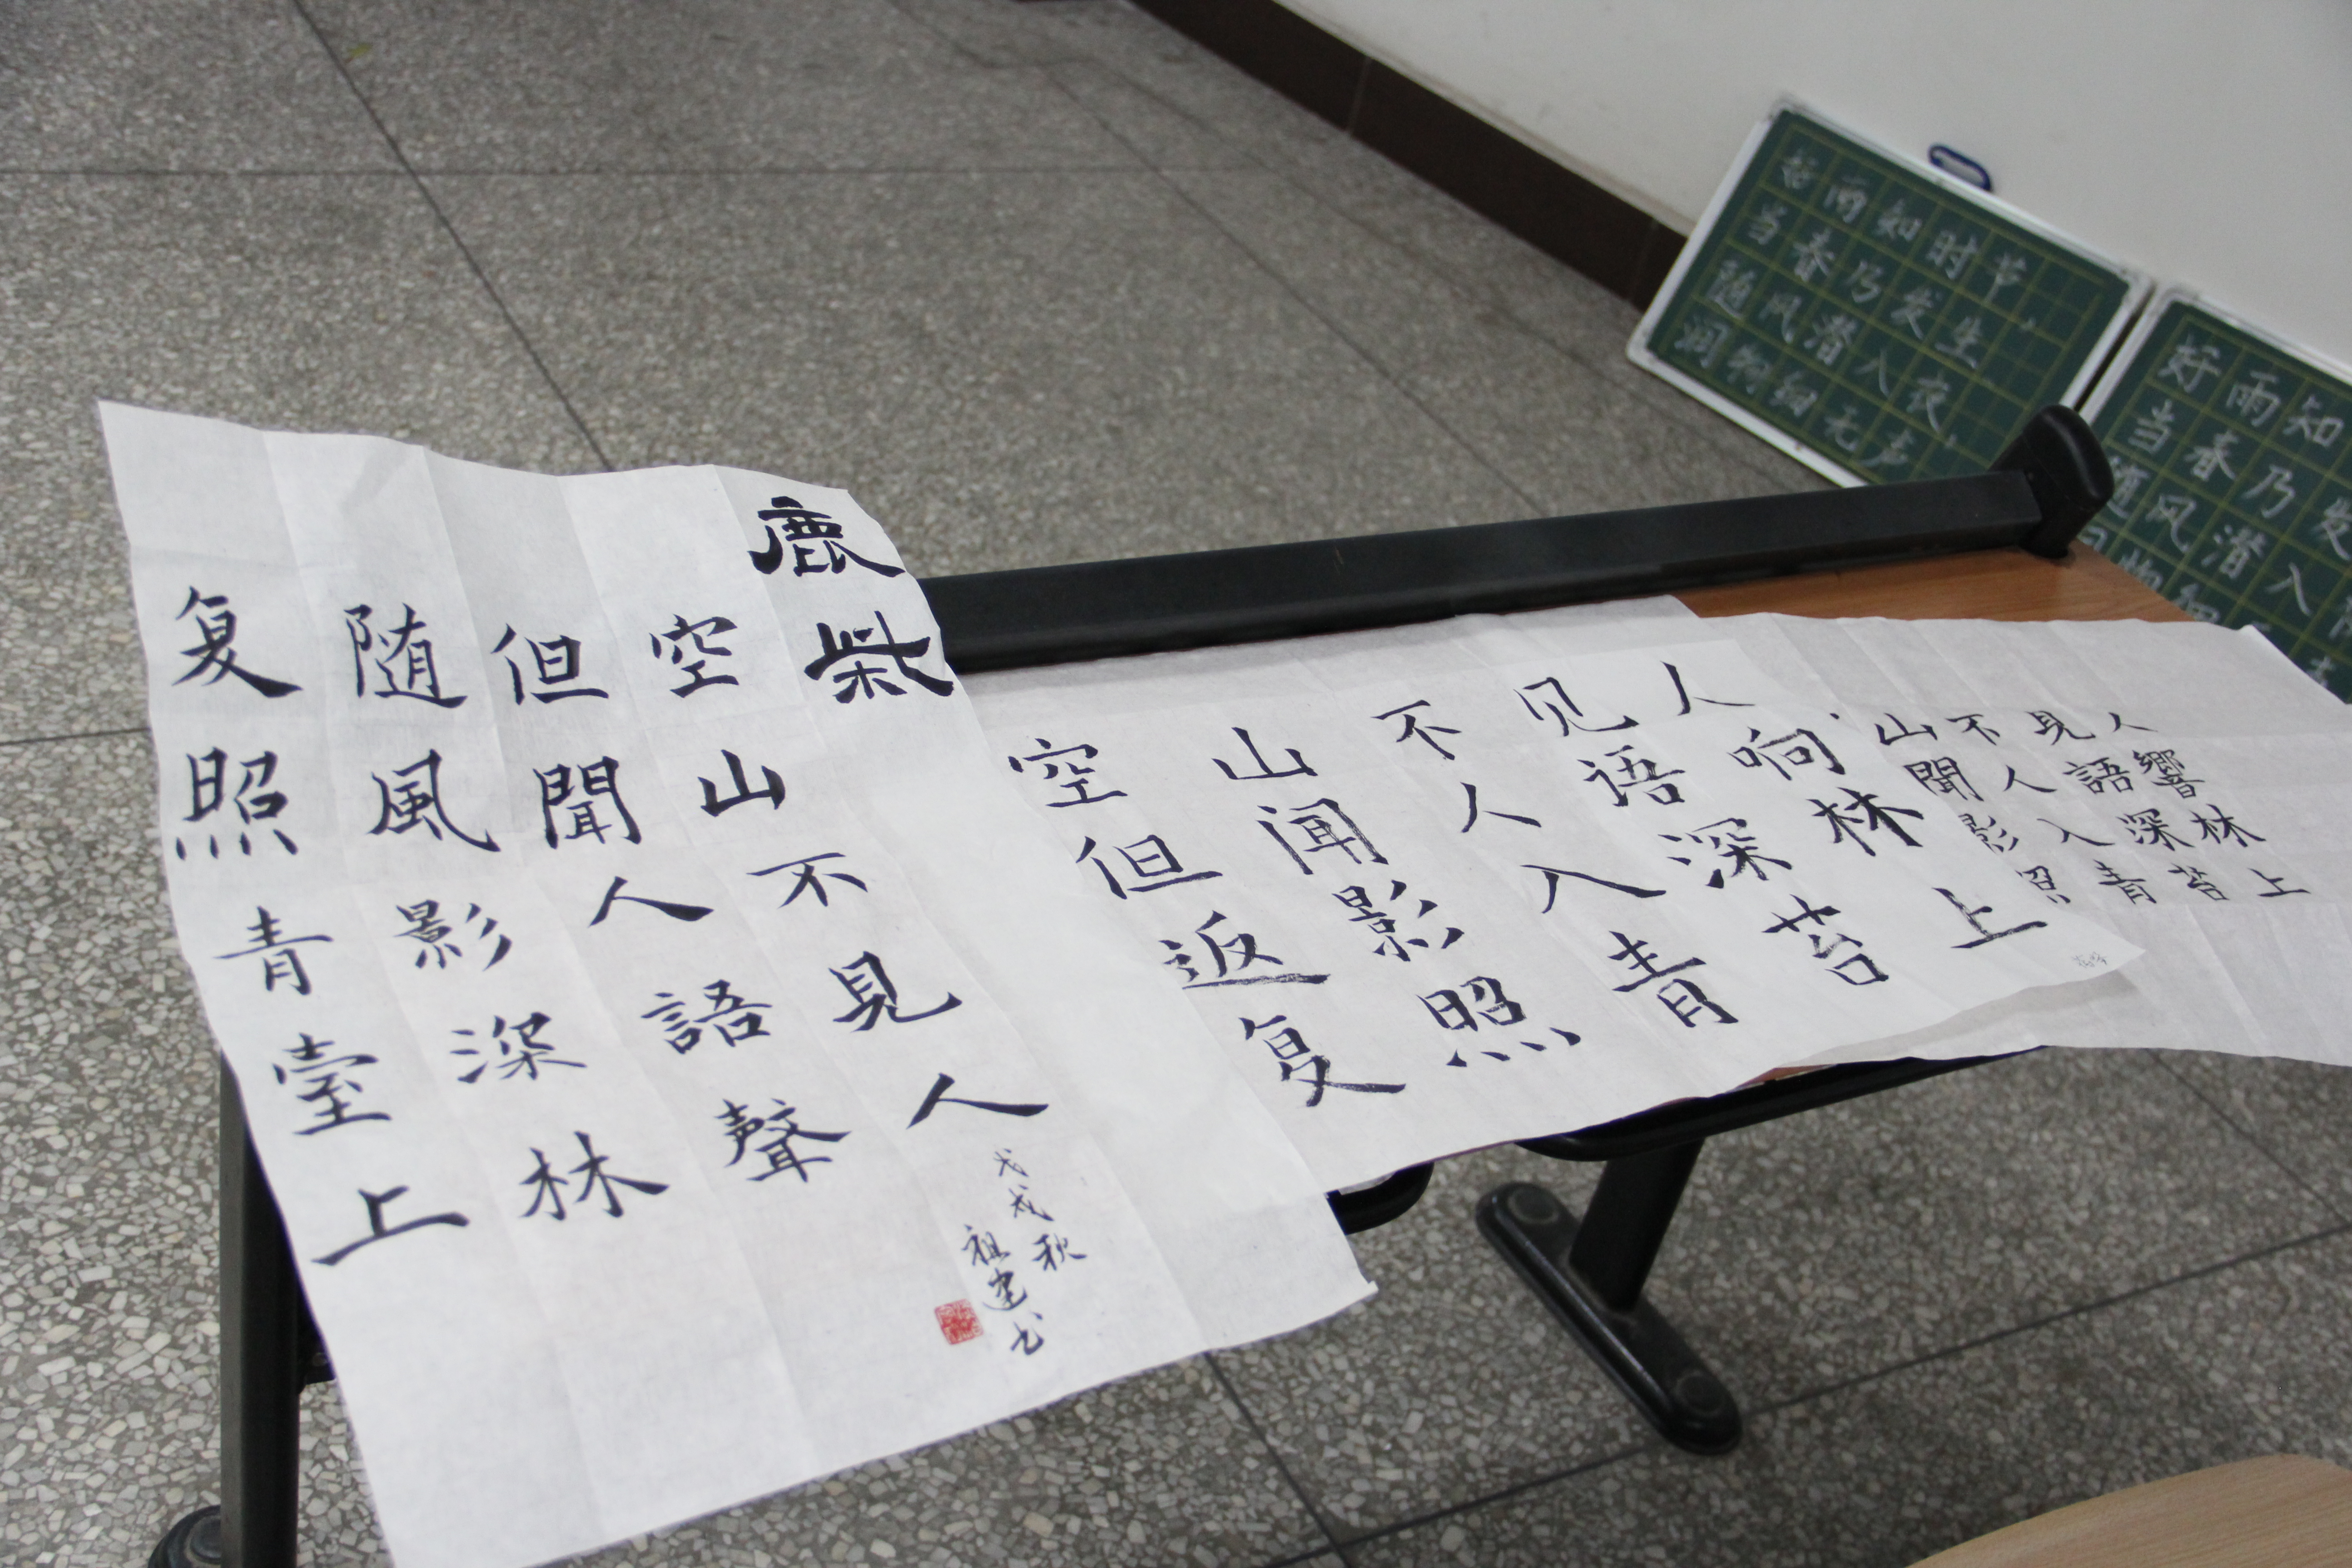 鹿柴
空山不見人
但聞人語聲
随風影深林
复照青臺上
戊戌秋
祖建书
空山不见人
但闻人语响
返影入深林
复照青苔上
山不見人
聞人語響
影入深林
照青苔上
好雨知时节，
当春乃发生。
随风潜入夜，
润物细无声
好雨知
当春乃发
随风潜入
物细